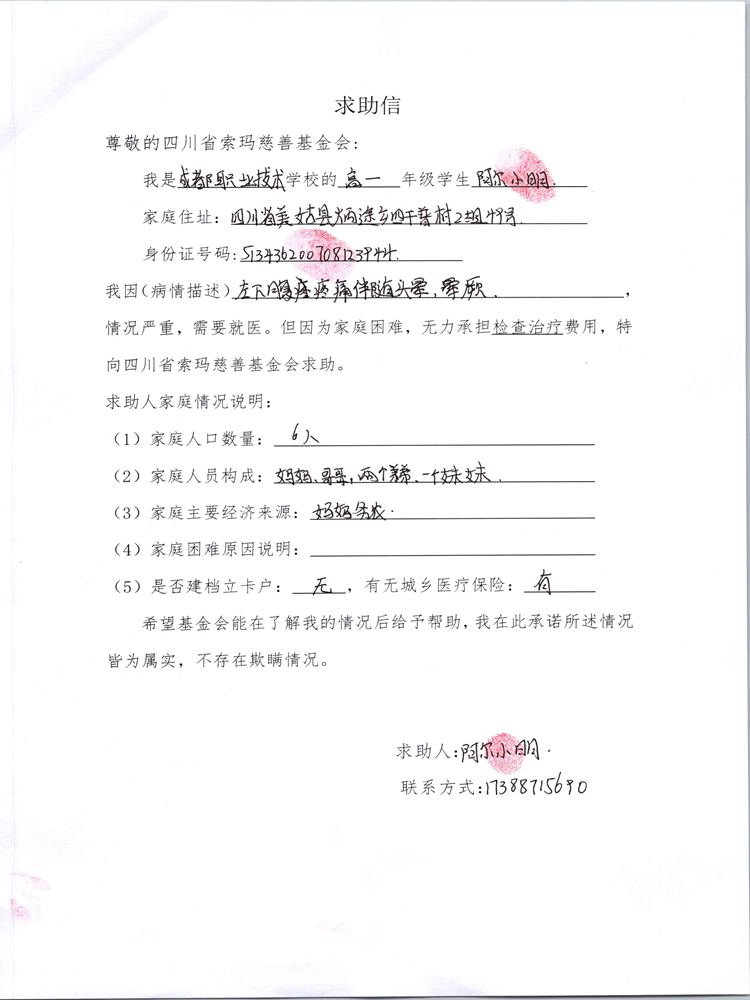 求助信
尊敬的四川省索玛慈善基金会:
我是成都职业技术学校的 高一 年级学生 阿尔小明.
家庭住址: 四川省美姑县炳途乡四干普村2组49号.
身份证号码:513436200708123944.
我因(病情描述)左下腹疼痛伴随头晕,晕厥.,
情况严重,需要就医。但因为家庭困难,无力承担检查治疗费用,特
向四川省索玛慈善基金会求助。
求助人家庭情况说明:
(1)家庭人口数量: 6人
(2)家庭人员构成: 妈妈、哥哥,两个弟弟、一个妹妹.
(3)家庭主要经济来源: 妈妈务农.
(4)家庭困难原因说明:
(5)是否建档立卡户: 无 ,有无城乡医疗保险: 有
希望基金会能在了解我的情况后给予帮助,我在此承诺所述情况
皆为属实,不存在欺瞒情况。
求助人:阿尔小明.
联系方式:17388715690